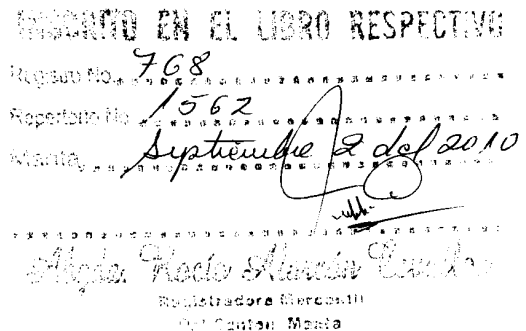 INSCRITO EN EL LIBRO RESPECTIVO
Registro No. 768
Repertorio No 1562
Manta, Septiembre 2 del 2010
Abgda. Rocío Alarcón Cevallos
Registradora Mercantil
Del Canton Manta